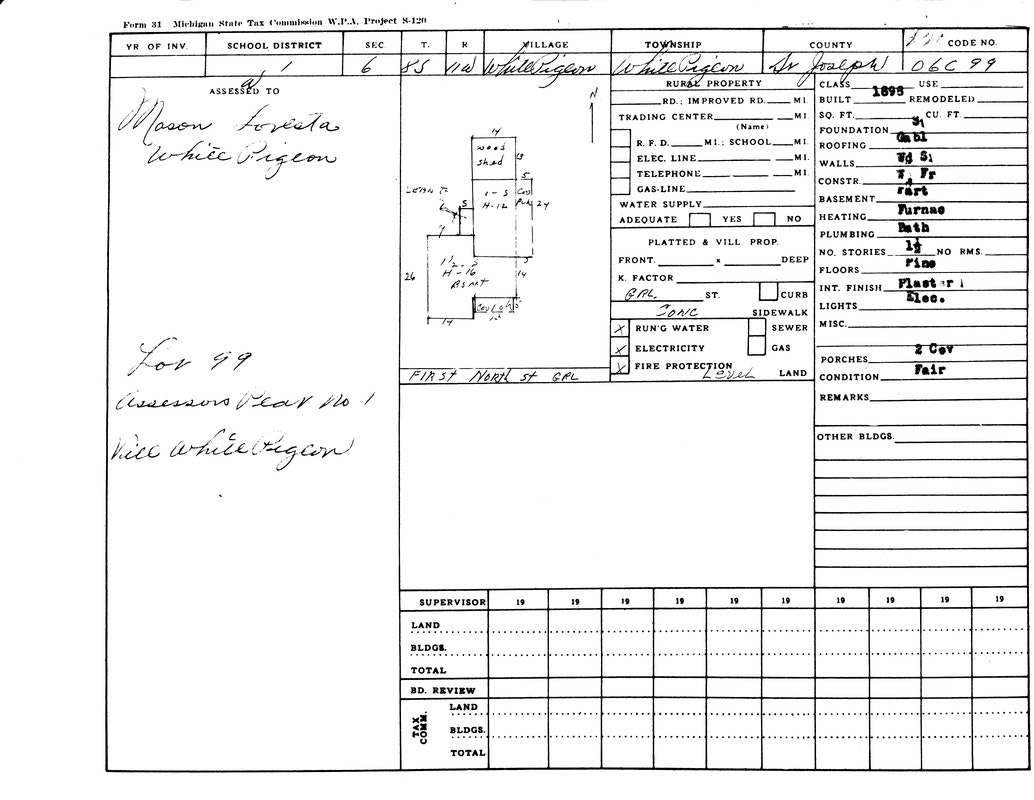 Form 31 Michigan State Tax Commission W.P.A. Project S-120
YR OF INV. SCHOOL DISTRICT SEC. T. R VILLAGE TOWNSHIP COUNTY CODE NO.
1 6 8S 11W White Pigeon White Pigeon St Joseph 06C 99
ASSESSED TO
Mason Loresta
White Pigeon
Lot 99
Assessors Plat No 1
Vill White Pigeon
N
14
wood
shed
5
1-S
H-12
24
5
26
1½-S
H-16
Bsmt
14
5
14
FIRST NORTH ST GRL
RURAL PROPERTY
RD.; IMPROVED RD. MI.
TRADING CENTER MI.
(Name)
R. F. D. MI.; SCHOOL MI.
ELEC. LINE MI.
TELEPHONE MI.
GAS-LINE
WATER SUPPLY
ADEQUATE YES NO
PLATTED & VILL PROP.
FRONT. x DEEP
K. FACTOR
GRL. ST. CURB
Conc SIDEWALK
X RUN'G WATER SEWER
X ELECTRICITY GAS
X FIRE PROTECTION
Level LAND
CLASS USE
BUILT 1895 REMODELED
SQ. FT. CU. FT.
FOUNDATION St
ROOFING Gabl
WALLS Wd Si
CONSTR. Fr
BASEMENT Part
HEATING Furnac
PLUMBING Bath
NO. STORIES 1½ NO RMS.
FLOORS Pine
INT. FINISH Plaster
LIGHTS Elec.
MISC.
PORCHES 2 Cov
CONDITION Fair
REMARKS
OTHER BLDGS.
SUPERVISOR 19 19 19 19 19 19 19 19 19 19
LAND
BLDGS.
TOTAL
BD. REVIEW
TAX COMM.
LAND
BLDGS.
TOTAL